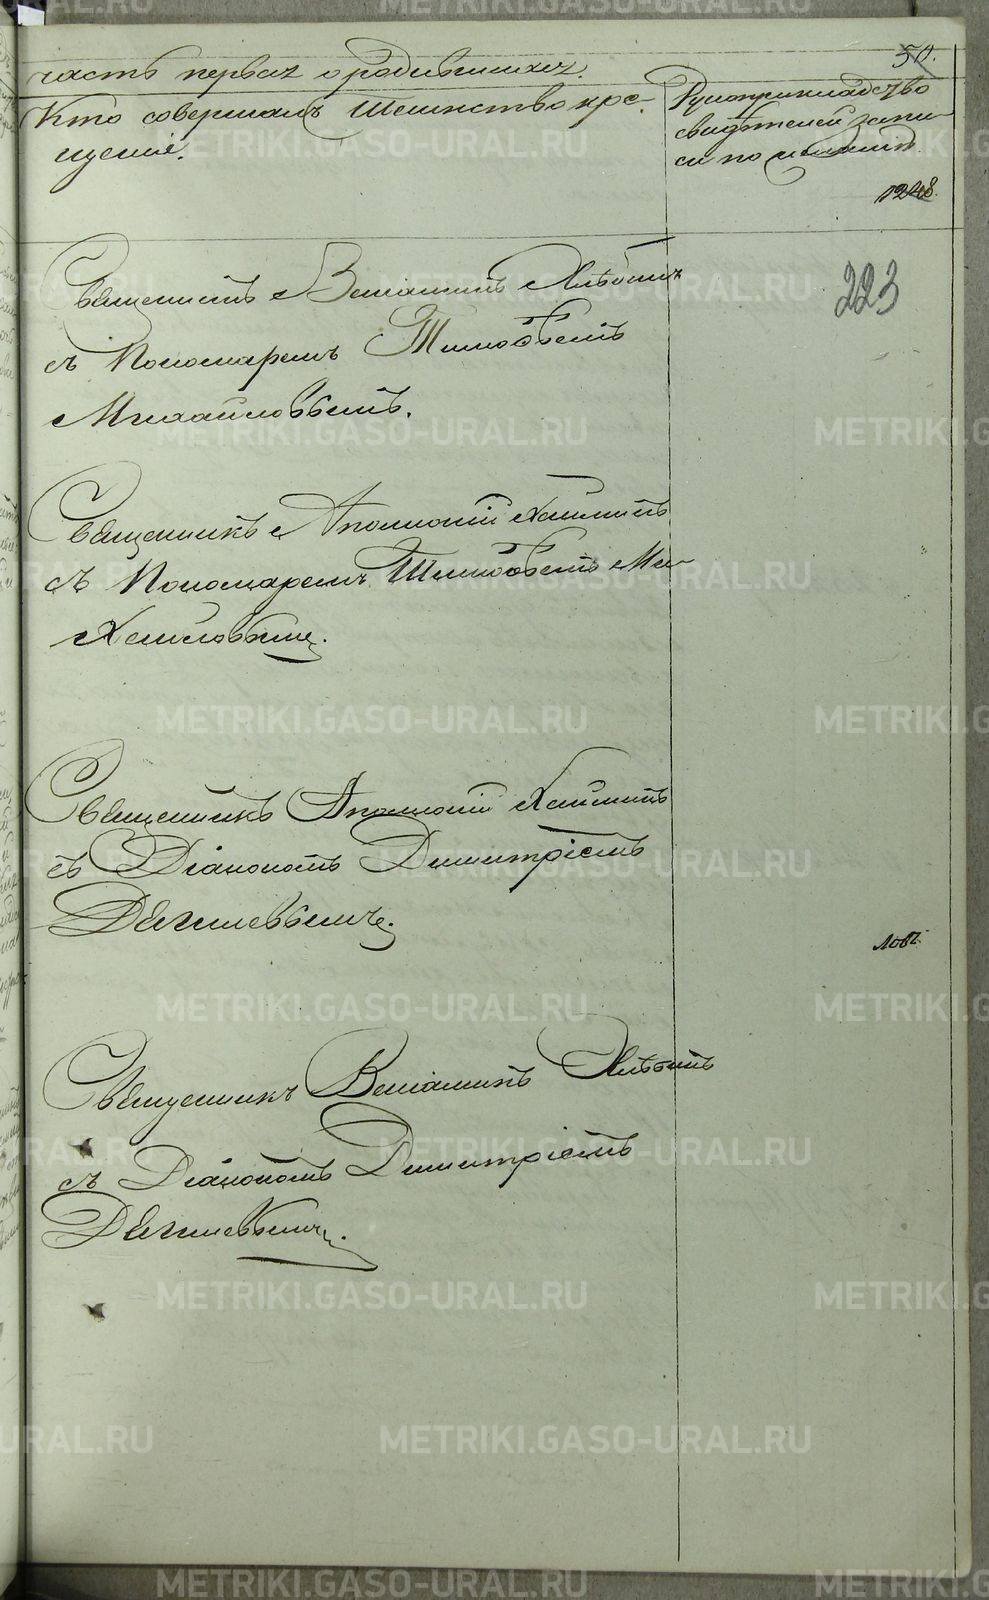 50.
часть первая о родившихся.
Кто совершалъ таинство кре-
щенiе.
Рукоприкладство
свидѣтелей запи
си по желанiю
1248.
223
Священникъ Венiаминъ Хлѣбинъ
съ Пономаремъ Тимоѳеемъ
Михайловымъ.
Священникъ Аполлонiй
съ Пономаремъ Тимоѳеемъ Ми
хайловымъ.
Священникъ Аполлонiй
съ Дiакономъ Димитрiемъ
Дягилевымъ.
Священникъ Венiаминъ Хлѣбинъ
съ Дiакономъ Димитрiемъ
Дягилевымъ.
METRIKI.GASO-URAL.RU